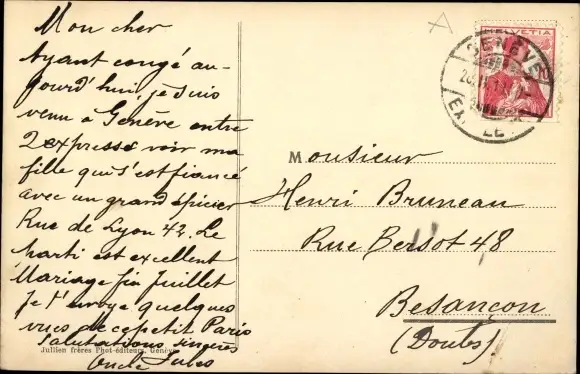 Mon cher
Ayant congé au-
jourd'hui, je suis
venu à Genève entre
2 express voir ma
fille qui s'est fiancé
avec un grand épicier
Rue de Lyon 42. Le
parti est excellent
Mariage fin Juillet
Je t'envoye quelques
vues de ce petit Paris
Salutations sincères
Oncle Jules
Jullien frères Phot-éditeurs, Genève
HELVETIA
GENÈVE
Monsieur
Henri Bruneau
Rue Bersot 48
Besançon
(Doubs)